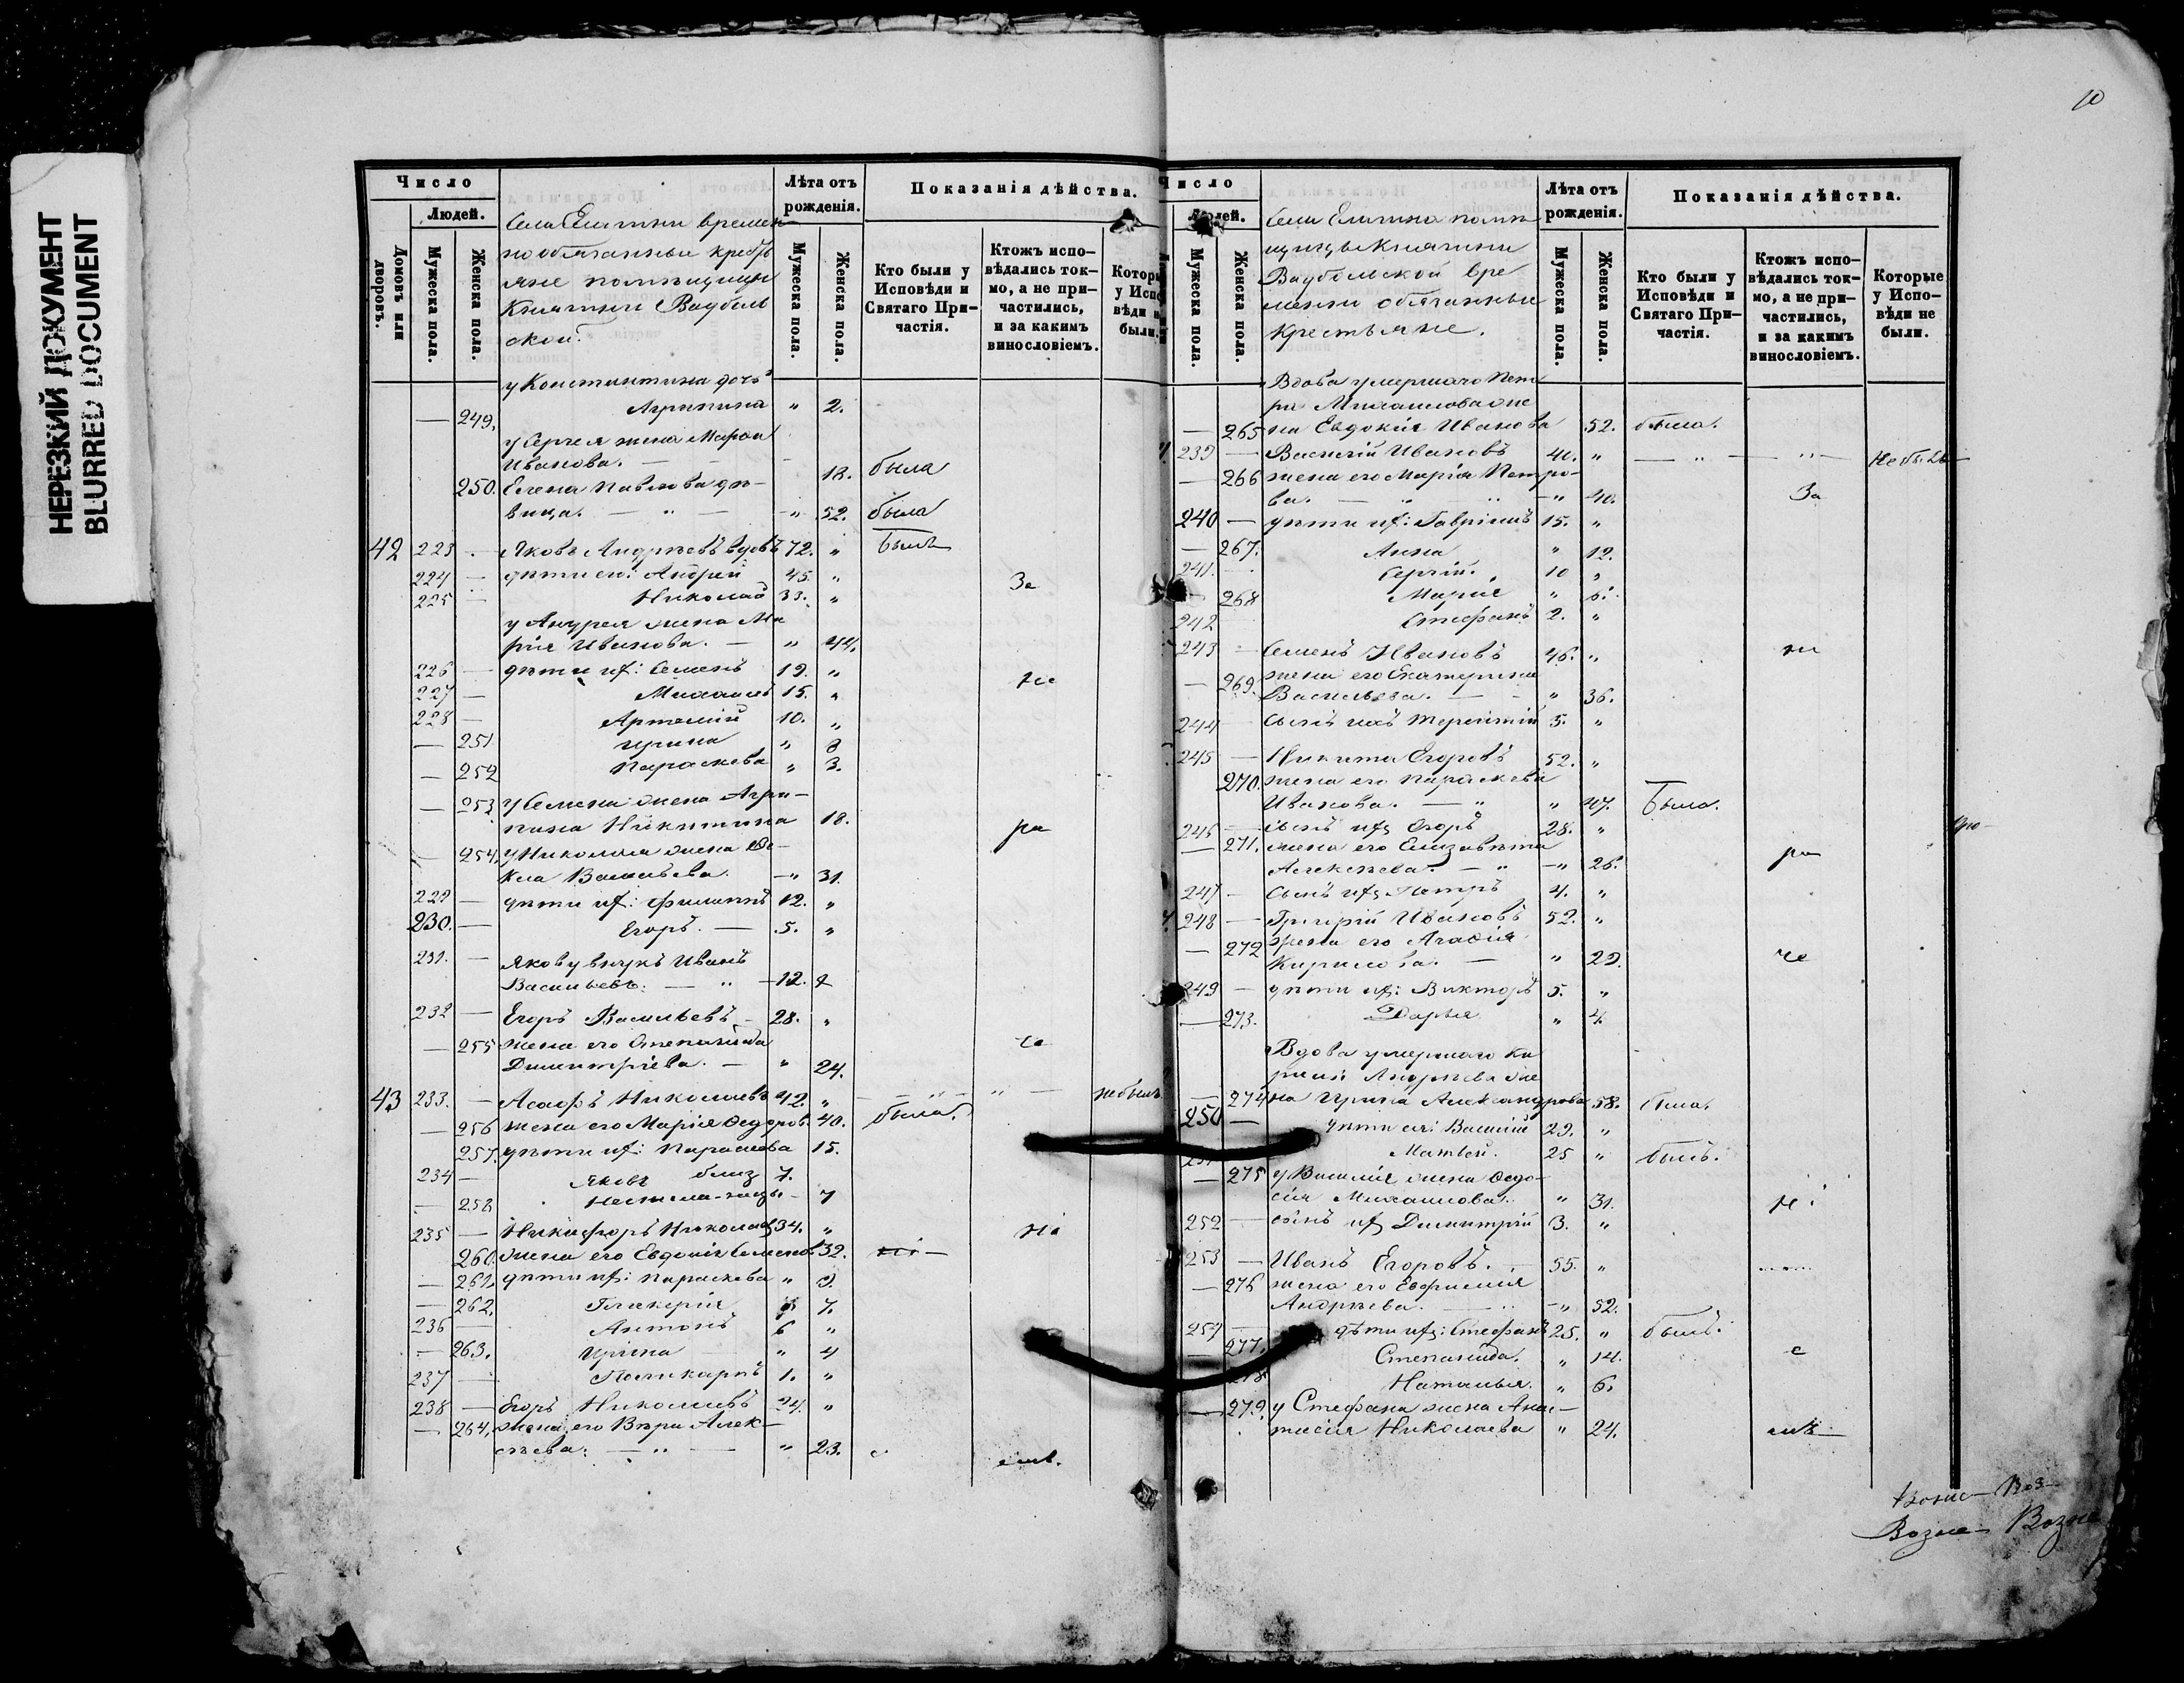 НЕРЕЗКИЙ ДОКУМЕНТ
BLURRED DOCUMENT
10
Число
Людей.
Домовъ или дворовъ.
Мужеска пола.
Женска пола.
Села времен
но обязанные кресть
яне помѣщицы
Княгини Вадболь
ской.
Лѣта отъ рожденія.
Мужеска пола.
Женска пола.
Показанія дѣйства.
Кто были у Исповѣди и Святаго Причастія.
Ктожъ исповѣдались токмо, а не причастились, и за какимъ винословіемъ.
Которые у Исповѣди не были.
у Константина дочь
— 249. Агрипина " 2.
у Сергея жена Марѳа
Иванова. — 18. была
250. Елена Павлова дѣ-
вица. — " — " 52. была
42 223 - Яковъ Андреевъ вдовъ 72. " былъ
224 — дѣти его: Андрей 45. " За
225 — Николай 33. "
у Андрея жена Ма
рія Иванова. — " 44.
226 — дѣти их: Семенъ 19. " не
227 — Михаилъ 15. "
228 — Артемій 10. "
— 251 Ирина " 8
— 252 Параскева " 3.
— 253 у Семена жена Агри-
пина Никитина 18. ра
— 254. у Николая жена Ѳе-
кла Васильева. — " 31.
229 — дѣти их: Филиппъ 12. "
230. — Егоръ. — 5. "
231. — Якову внукъ Иванъ
Васильевъ: — " — 12.
232 — Егоръ Васильевъ - 28. "
— 255 жена его Степанида
Димитріева. — " 24.
43 233. — Асафъ Николаевъ 42. " — " — " — небылъ
— 256 жена его Марія Ѳедоров. 40. была.
257. дѣти их: Параскева 15.
234 — Яковъ близ 7.
— 258 - нецы - 7
235 — Никифоръ Николаев 34. "
260. жена его Евдокія Семенов. 32.
— 261. дѣти их: Параскева " 9.
— 262. Гликерія 7.
236 — Антонъ 6 "
— 263. Ирина — " 4
237 — Поликарпъ 1. "
238 — Егоръ Николаевъ 24. "
— 264. жена его Вѣра Алек-
сѣева: — " — " 23. емъ.
Число
Людей.
Мужеска пола.
Женска пола.
Села помѣ
щицы Княгини
Вадбольской вре
менно обязанные
крестьяне.
Лѣта отъ рожденія.
Мужеска пола.
Женска пола.
Показанія дѣйства.
Кто были у Исповѣди и Святаго Причастія.
Ктожъ исповѣдались токмо, а не причастились, и за какимъ винословіемъ.
Которые у Исповѣди не были.
Вдова умершаго Пет
ра Михаилова же
— 265 на Евдокія Иванова 52. была.
239 — Василій Ивановъ 40. " — " — " — Небылъ
— 266 жена его Марія Петро-
ва. — " " — " 40. За
240 — дѣти их: Гавріилъ 15. "
— 267. Анна " 12.
241. - Сергій. 10 "
— 268 Марія " 6.
242 Стефанъ 2. "
243 - Семенъ Ивановъ 46. " не
— 269. жена его Екатерина
Васильева. — - " 36.
244 сынъ ихъ Терентій 5. "
245 — Никита Егоровъ 52. "
270. жена его Параскева
Иванова. — " " 47. Была.
246 — сынъ их Егоръ 28. "
— 271. жена его Елизавета
Алексѣева. — " — " 26. ра
247 - сынъ их Петръ 4. "
248 — Григорій Ивановъ 52. "
— 272 жена его Агафія
Кирилова. — " 29.
249 — дѣти их: Викторъ 5. "
— 273. Дарья " 4.
Вдова умершаго Ки
рила Андреева же
— 274 на Ирина Александрова 58. была.
250 — дѣти ея: Василій 29. "
251 Матвей. 25 " былъ.
— 275 у Василія жена Ѳедо-
сія Михаилова. " 31.
252 — сынъ их Димитрій 3. "
253 — Иванъ Егоровъ. 55. "
— 276 жена его Евфимія
Андреева. — " — " 52.
254 — дѣти их: Стефанъ 25. " былъ.
— 277. Степанида. " 14. с
278 Наталья. " 6.
— 279. у Стефана жена Анас-
тасія Николаева " 24. емъ —
Возне